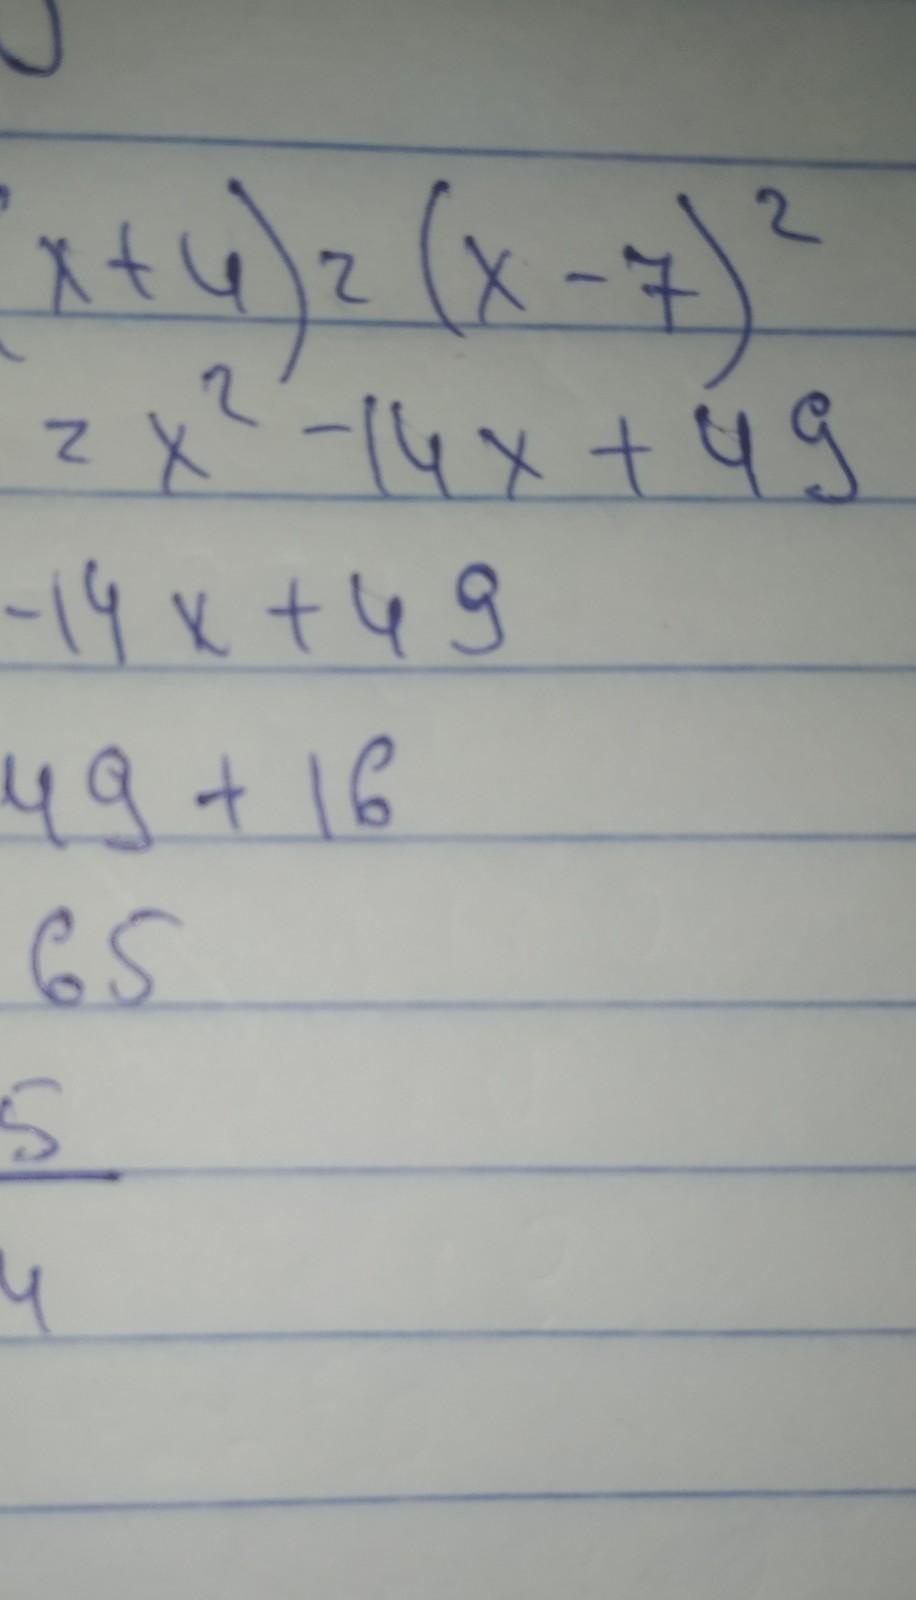 x+4)=(x-7)²
=x²-14x+49
-14x+49
49+16
65
5
4